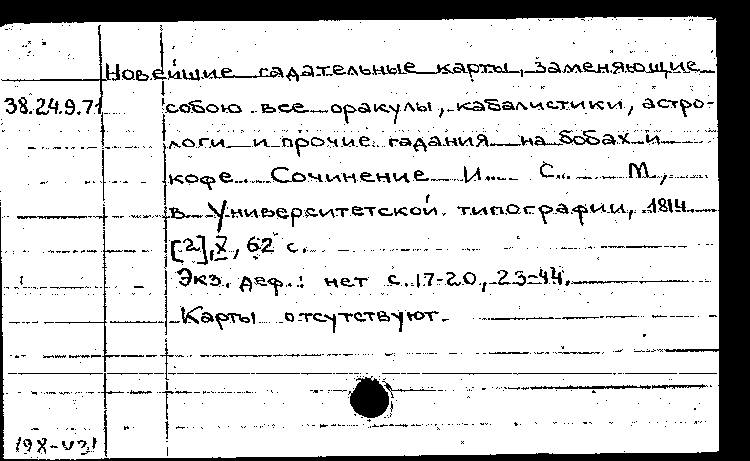 Новейшие гадательные карты, заменяющие
38.24.9.71 собою все оракулы, кабалистики, астро-
логи и прочие гадания на бобах и
кофе. Сочинение И... С... М,
в Университетской типографии, 1814
[2], X, 62 с.
Экз. деф.: нет с. 17-20, 23-44.
Карты отсутствуют.